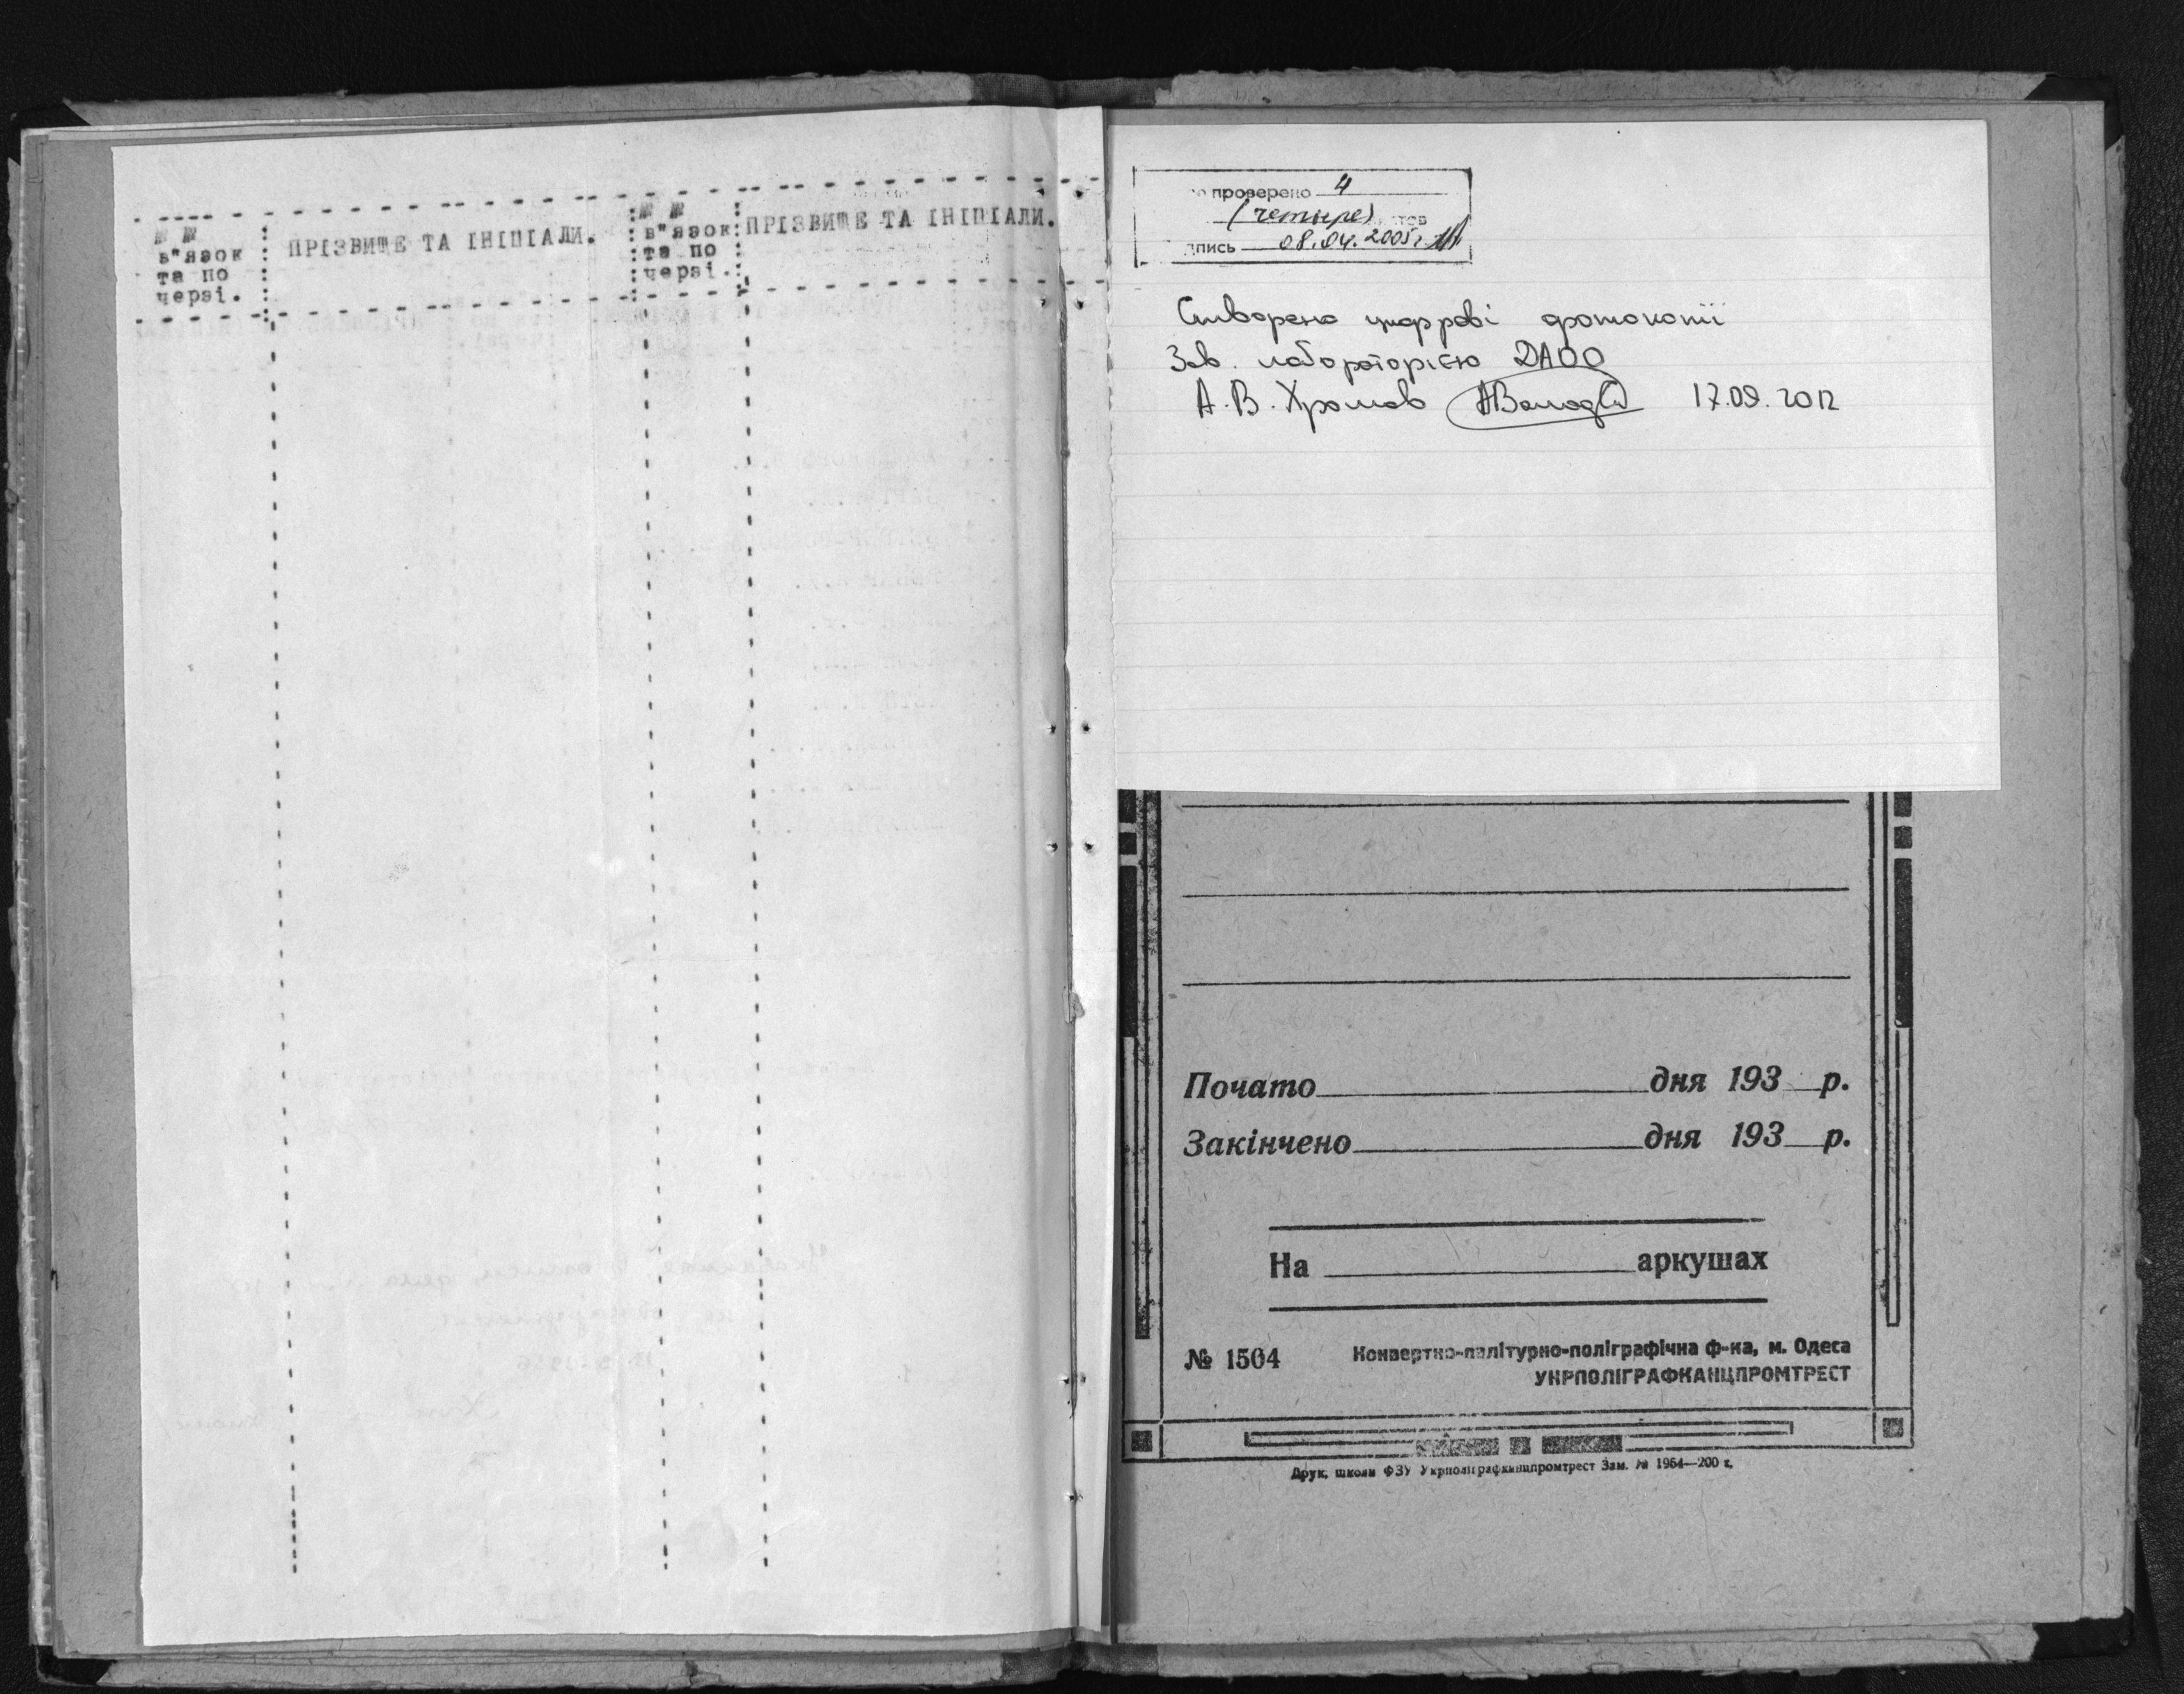 № №
в"язок
та по
черзі.
ПРІЗВИЩЕ ТА ІНІЦІАЛИ.
№ №
в"язок
та по
черзі.
ПРІЗВИЩЕ ТА ІНІЦІАЛИ.
проверено 4
(четыре)
08.04.2005г.
Створено цифрові фотокопії
Зав. лабораторією ДАОО
А. В. Хромов 17.09.2012
Почато дня 193 р.
Закінчено дня 193 р.
На аркушах
№ 1504
Конвертно-палітурно-поліграфічна ф-ка, м. Одеса
УКРПОЛІГРАФКАНЦПРОМТРЕСТ
Друк. школи ФЗУ Укрполіграфканцпромтрест Зам. № 1964—200 т.